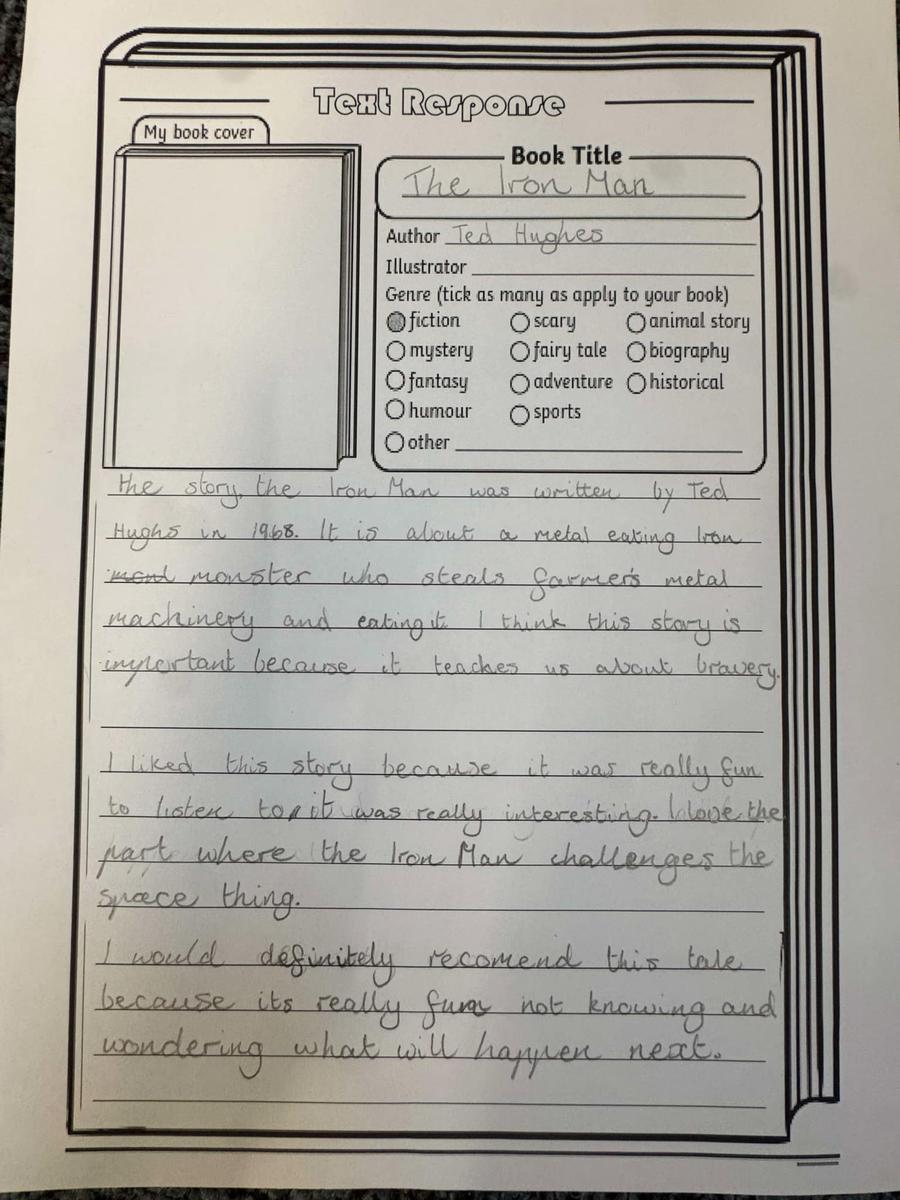 Text Response
My book cover
Book Title
The Iron Man
Author Ted Hughes
Illustrator
Genre (tick as many as apply to your book)
fiction scary animal story
mystery fairy tale biography
fantasy adventure historical
humour sports
other
the story, the Iron Man was written by Ted
Hughs in 1968. It is about a metal eating Iron
monster who steals farmer's metal
machinery and eating it. I think this story is
important because it teaches us about bravery.
I liked this story because it was really fun
to listen to it was really interesting. I love the
part where the Iron Man challenges the
space thing.
I would definitely recomend this tale
because its really fun not knowing and
wondering what will happen next.